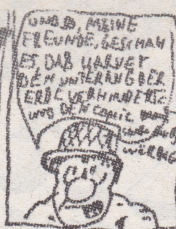 UND SO, MEINE
FREUNDE, GESCHAH
ES, DAß HARVEY
DEN UNTERGANG DER
ERDE VERHINDERTE
UND DEN COMIC